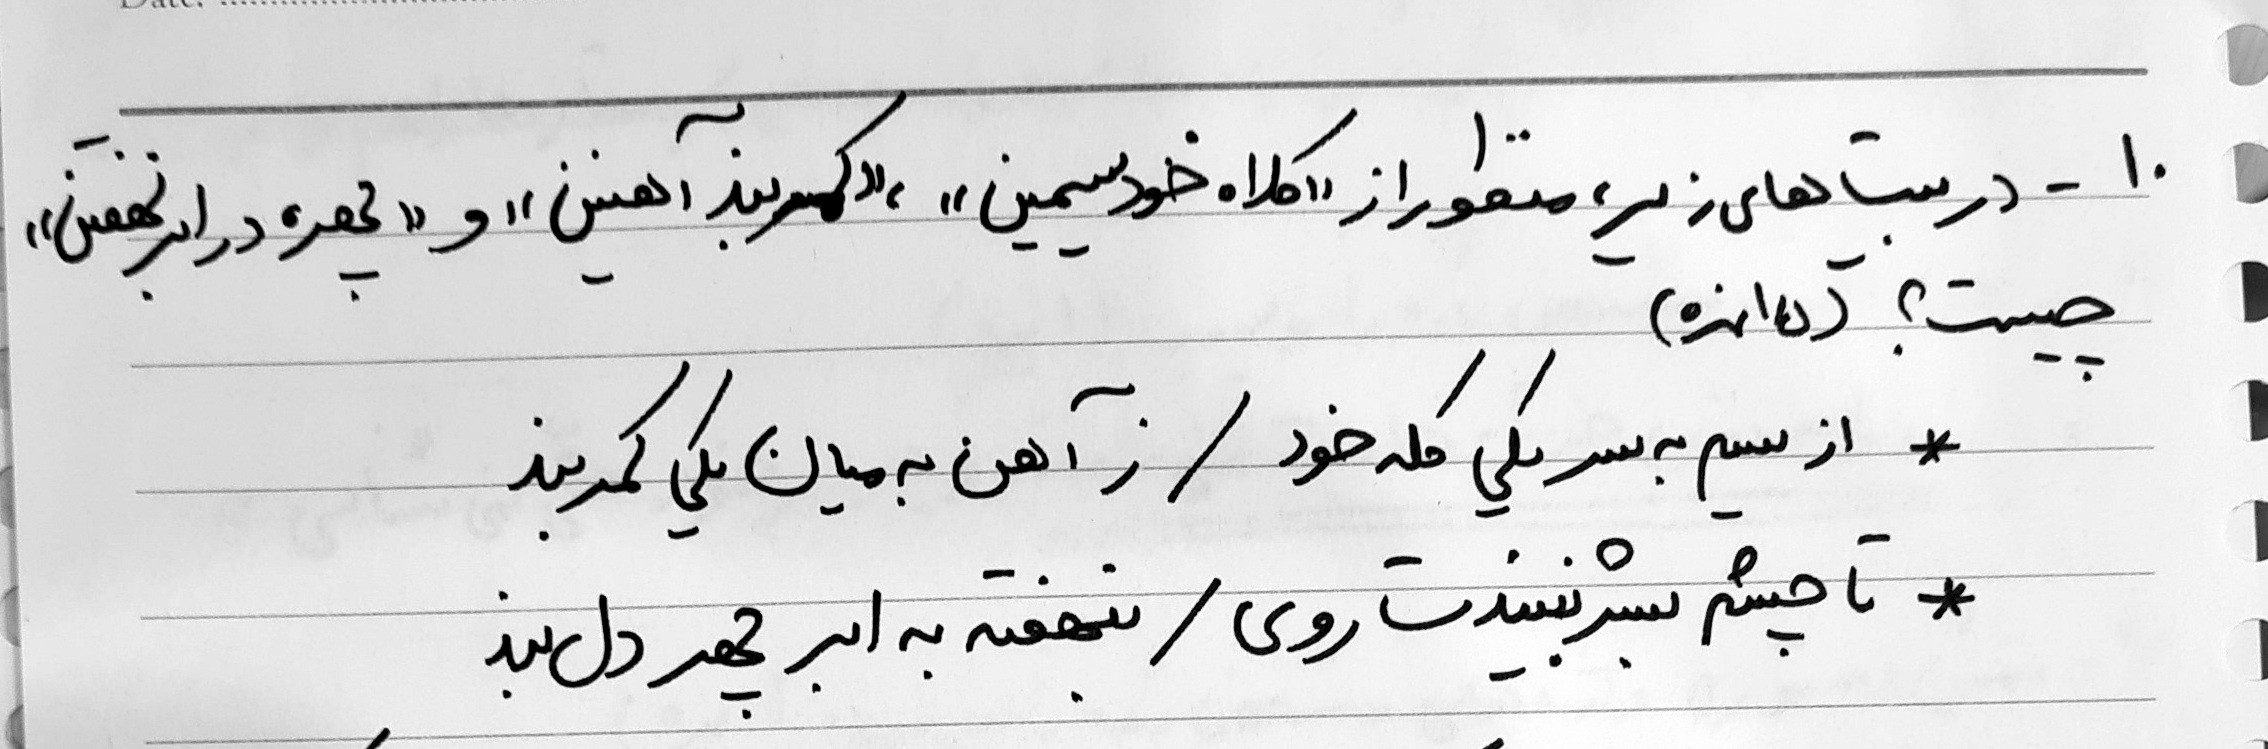 ۱۰- در بیت‌های زیر، منظور از «کلاه خود سیمین»، «کمربند آهنین» و «چهره در ابر نهفتن»
چیست؟ (نمره)
* از سیم به سر یکی کله خود / ز آهن به میان یکی کمربند
* تا چشم بشر نبیندت روی / بنهفته به ابر چهر دل بند